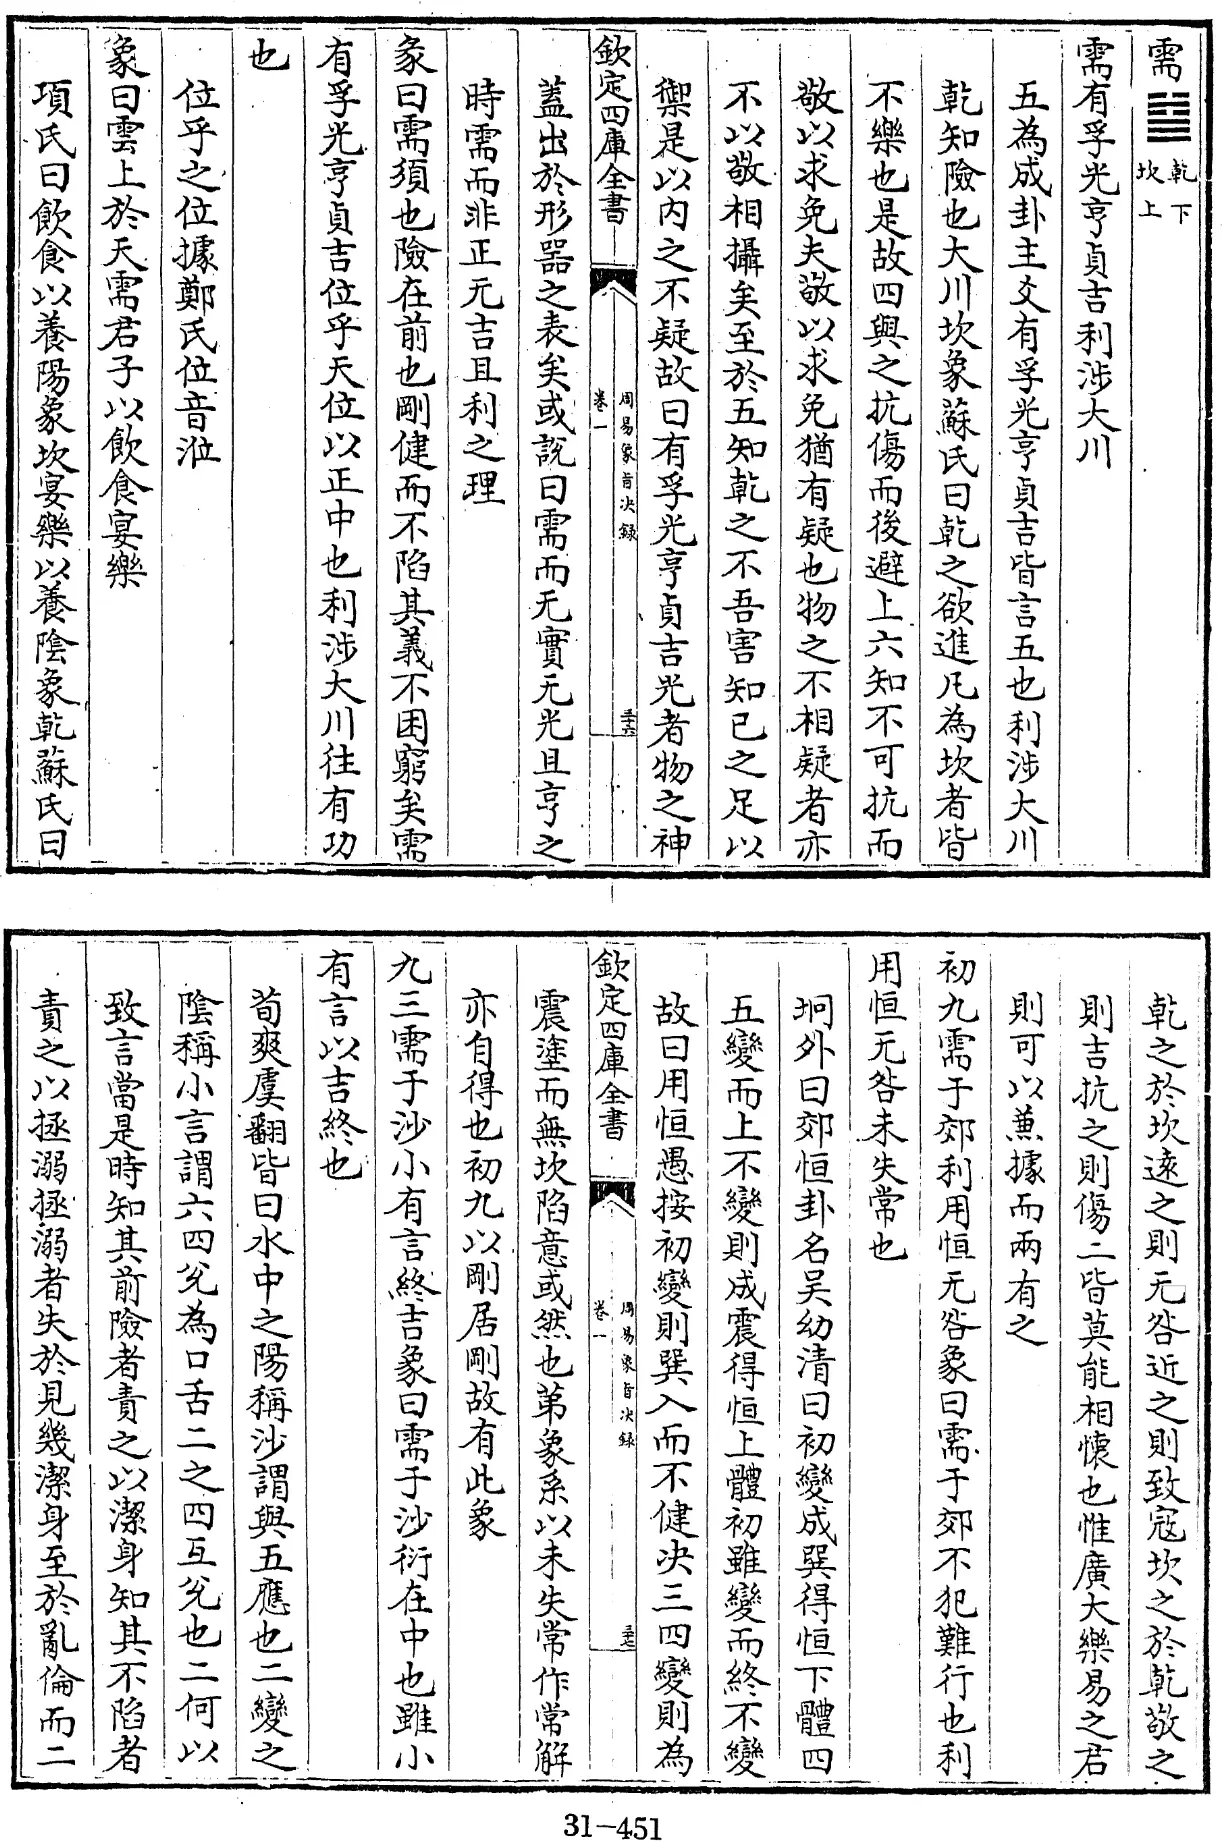 需䷄乾下坎上
需有孚光亨貞吉利涉大川
五為成卦主爻有孚光亨貞吉皆言五也利涉大川
乾知險也大川坎象蘇氏曰乾之欲進凡為坎者皆
不樂也是故四與之抗傷而後避上六知不可抗而
敬以求免夫敬以求免猶有疑也物之不相疑者亦
不以敬相攝矣至於五知乾之不吾害知已之足以
禦是以内之不疑故曰有孚光亨貞吉光者物之神
欽定四庫全書
周易象旨決録
卷一
三十六
蓋出於形器之表矣或説曰需而无實无光且亨之
時需而非正元吉且利之理
彖曰需須也險在前也剛健而不陷其義不困窮矣需
有孚光亨貞吉位乎天位以正中也利涉大川往有功
也
位乎之位據鄭氏位音涖
象曰雲上於天需君子以飲食宴樂
項氏曰飲食以養陽象坎宴樂以養陰象乾蘇氏曰
乾之於坎遠之則无咎近之則致寇坎之於乾敬之
則吉抗之則傷二皆莫能相懷也惟廣大樂易之君
則可以蕙據而兩有之
初九需于郊利用恒无咎象曰需于郊不犯難行也利
用恒无咎未失常也
坰外曰郊恒卦名吴幼清曰初變成巽得恒下體四
五變而上不變則成震得恒上體初雖變而終不變
故曰用恒愚按初變則巽入而不健决三四變則為
欽定四庫全書
周易象旨決録
卷一
三十七
震塗而無坎陷意或然也第象系以未失常作常解
亦自得也初九以剛居剛故有此象
九三需于沙小有言終吉象曰需于沙衍在中也雖小
有言以吉終也
荀爽虞翻皆曰水中之陽稱沙謂與五應也二變之
陰稱小言謂六四兊為口舌二之四互兊也二何以
致言當是時知其前險者責之以潔身知其不陷者
責之以拯溺拯溺者失於見幾潔身至於亂倫而二
31-451